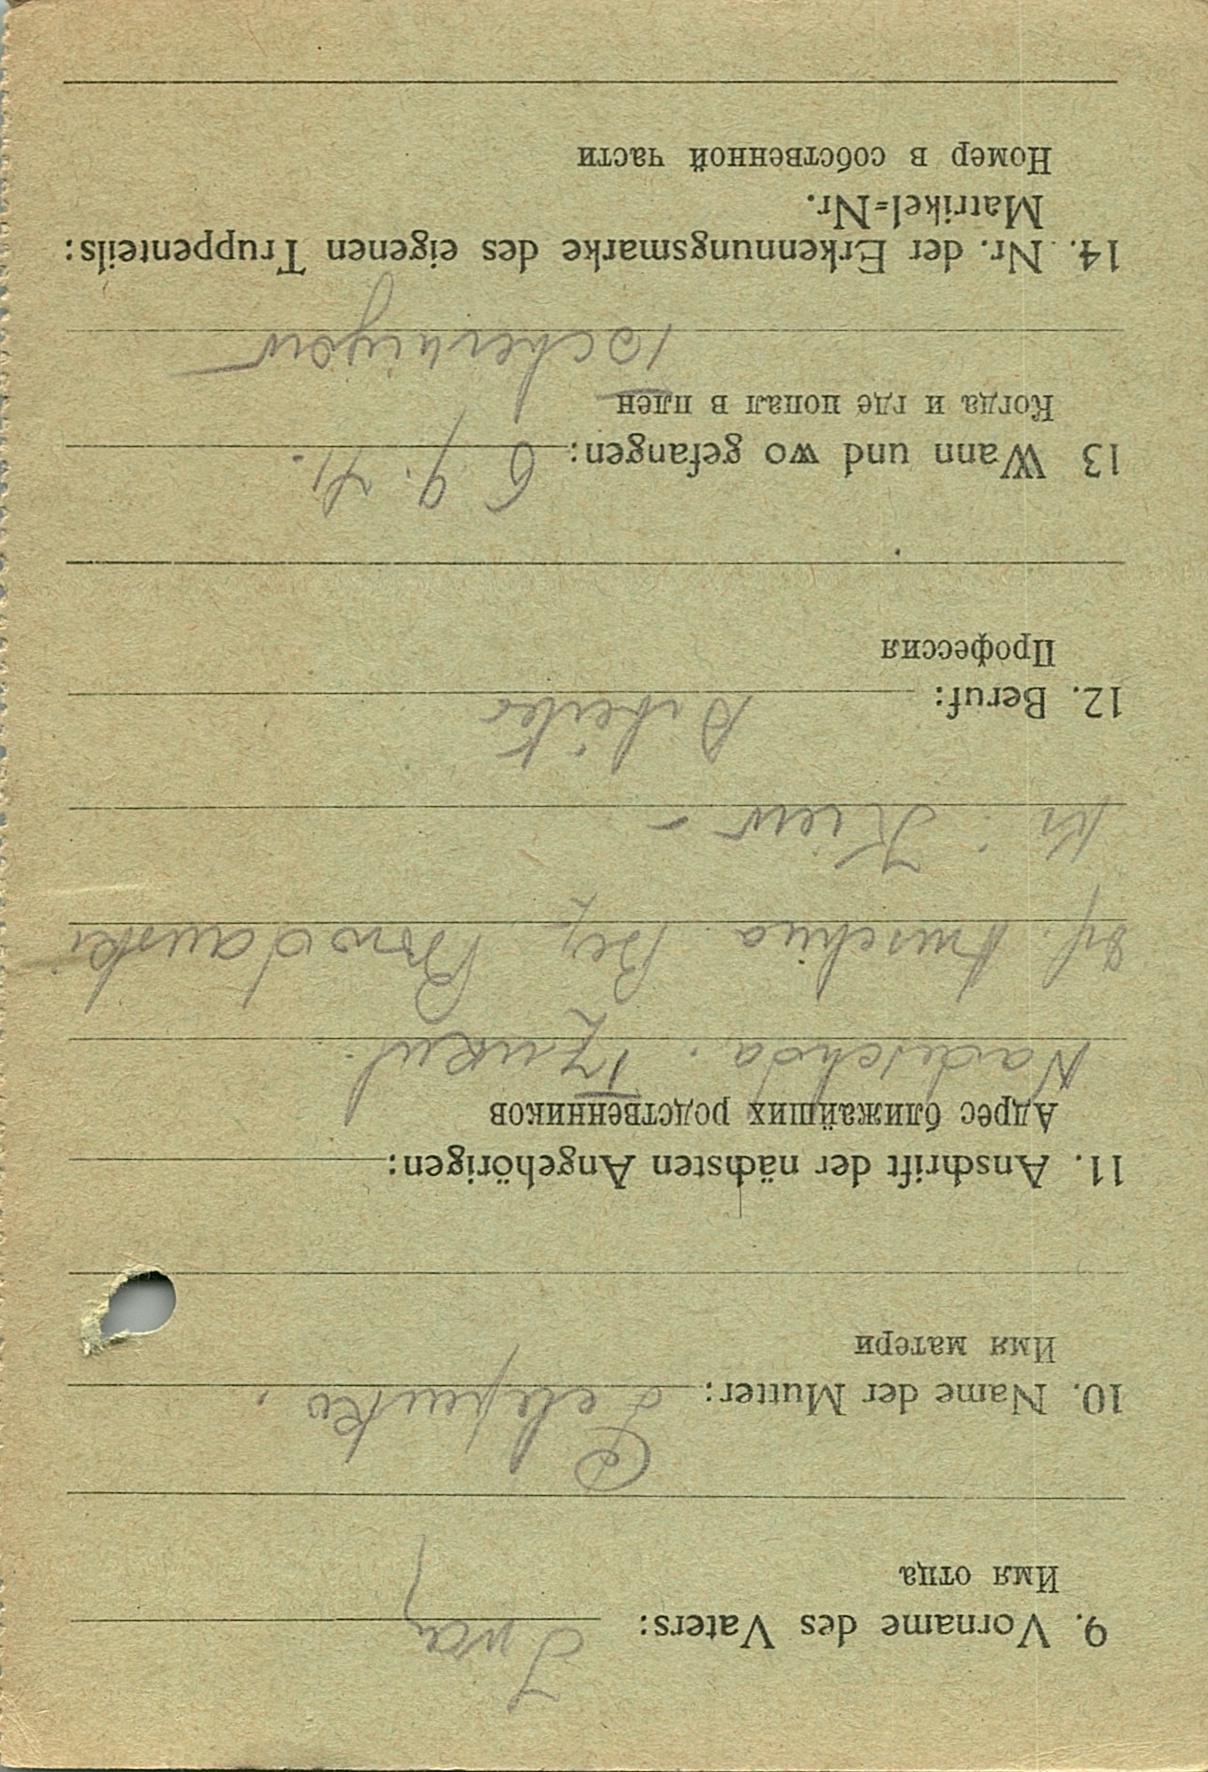 9. Vorname des Vaters: Iwan
Имя отца
10. Name der Mutter:
Имя матери
11. Anschrift der nächsten Angehörigen:
Адрес ближайших родственников
Nadeschda
Bez.
Kiew -
12. Beruf: Arbeiter
Профессия
13 Wann und wo gefangen: 6 9. 41.
Когда и где попал в плен
Tschernigow
14. Nr. der Erkennungsmarke des eigenen Truppenteils:
Matrikel=Nr.
Номер в собственной части